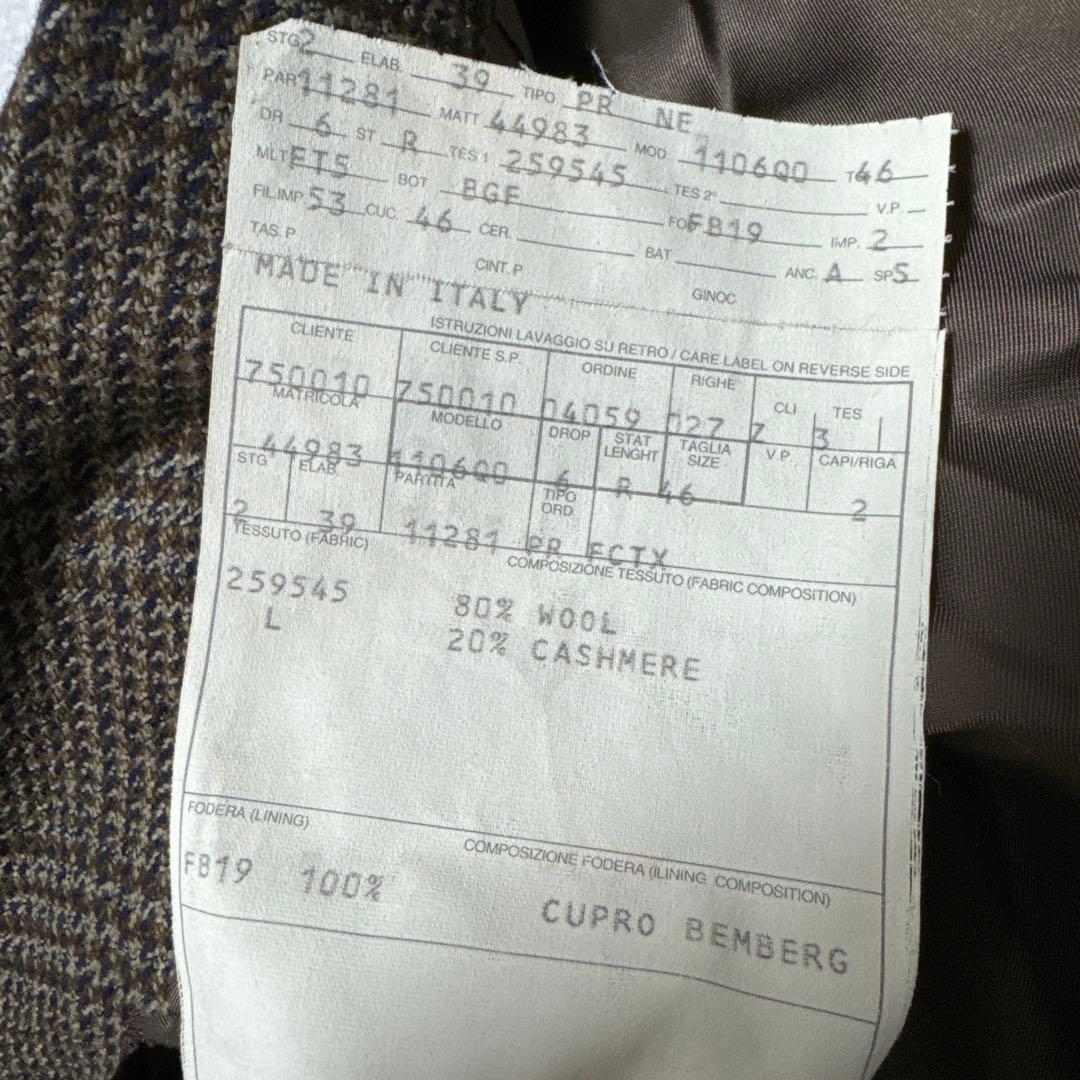 STG 2 ELAB. 39 TIPO PR NE
PAR 11281 MATT 44983 MOD 1106Q0 T 46
DR 6 ST R TES 1 259545 TES 2° V.P.
MLT ET5 BOT BGF FO FB19 IMP. 2
FIL.IMP 53 CUC. 46 CER. BAT ANC. A SP 5
TAS. P CINT. P GINOC
MADE IN ITALY
ISTRUZIONI LAVAGGIO SU RETRO / CARE LABEL ON REVERSE SIDE
CLIENTE CLIENTE S.P. ORDINE RIGHE CLI TES
750010 750010 04059 027 Z 3
MATRICOLA MODELLO DROP STAT LENGHT TAGLIA SIZE V.P. CAPI/RIGA
44983 1106Q0 6 R 46 2
STG ELAB. PARTITA TIPO ORD.
2 39 11281 PR FCTX
TESSUTO (FABRIC) COMPOSIZIONE TESSUTO (FABRIC COMPOSITION)
259545 80% WOOL
L 20% CASHMERE
FODERA (LINING) COMPOSIZIONE FODERA (LINING COMPOSITION)
FB19 100% CUPRO BEMBERG